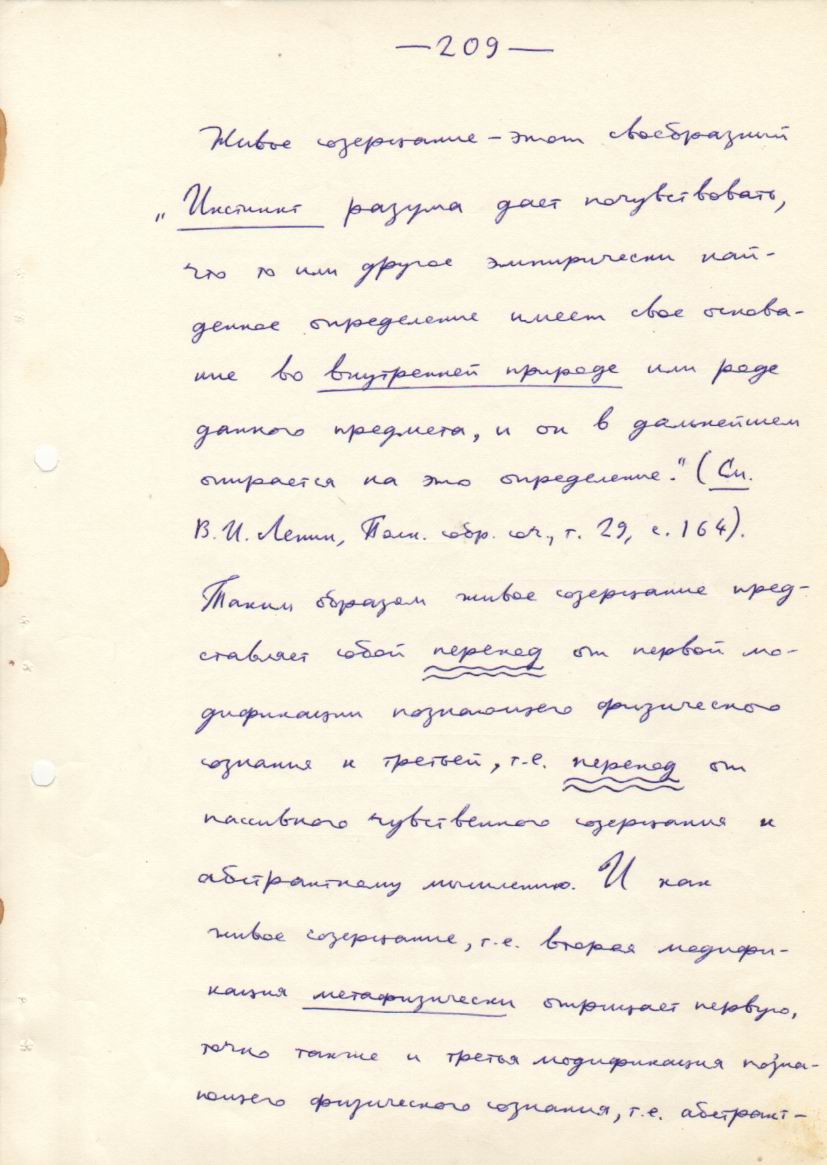 —209—
Живое созерцание – этот своебразний
„Инстинкт разума дает почувствовать,
что то или другое эмпирически най-
денное определение имеет свое основа-
ние во внутренней природе или роде
данного предмета, и он в дальнейшем
опирается на это определение." (См.
В.И. Ленин, Полн. собр. соч., т. 29, с. 164).
Таким образом живое созерцание пред-
ставляет собой переход от первой мо-
дификации познающего физического
сознания к третьей, т.е. переход от
пассивного чувственного созерцания к
абстрактному мышлению. И как
живое созерцание, т.е. вторая модифи-
кация метафизически отрицает первую,
точно также и третья модификация позна-
ющего физического сознания, т.е. абстракт-